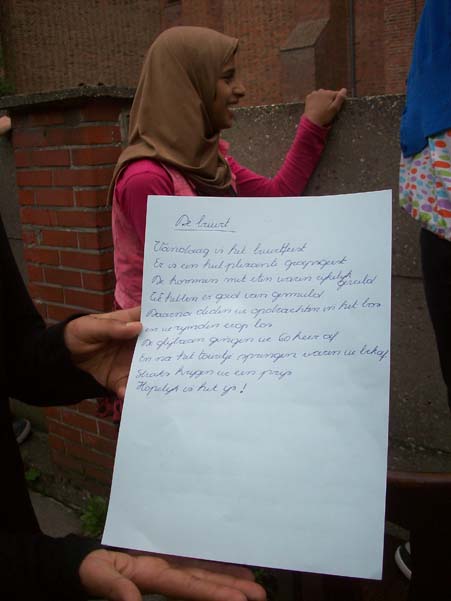 De buurt
Vandaag is het buurtfeest
Er is een heel plezante groepsgeest
De kommen met eten waren rijkelijk gevuld
We hebben er goed van gesmuld
Daarna deden we opdrachten in het bos
en we rijmden erop los
De glijbaan gingen we 60 keer af
En na het touwtje springen waren we bekaf
Straks krijgen we een prijs
Hopelijk is het ijs!